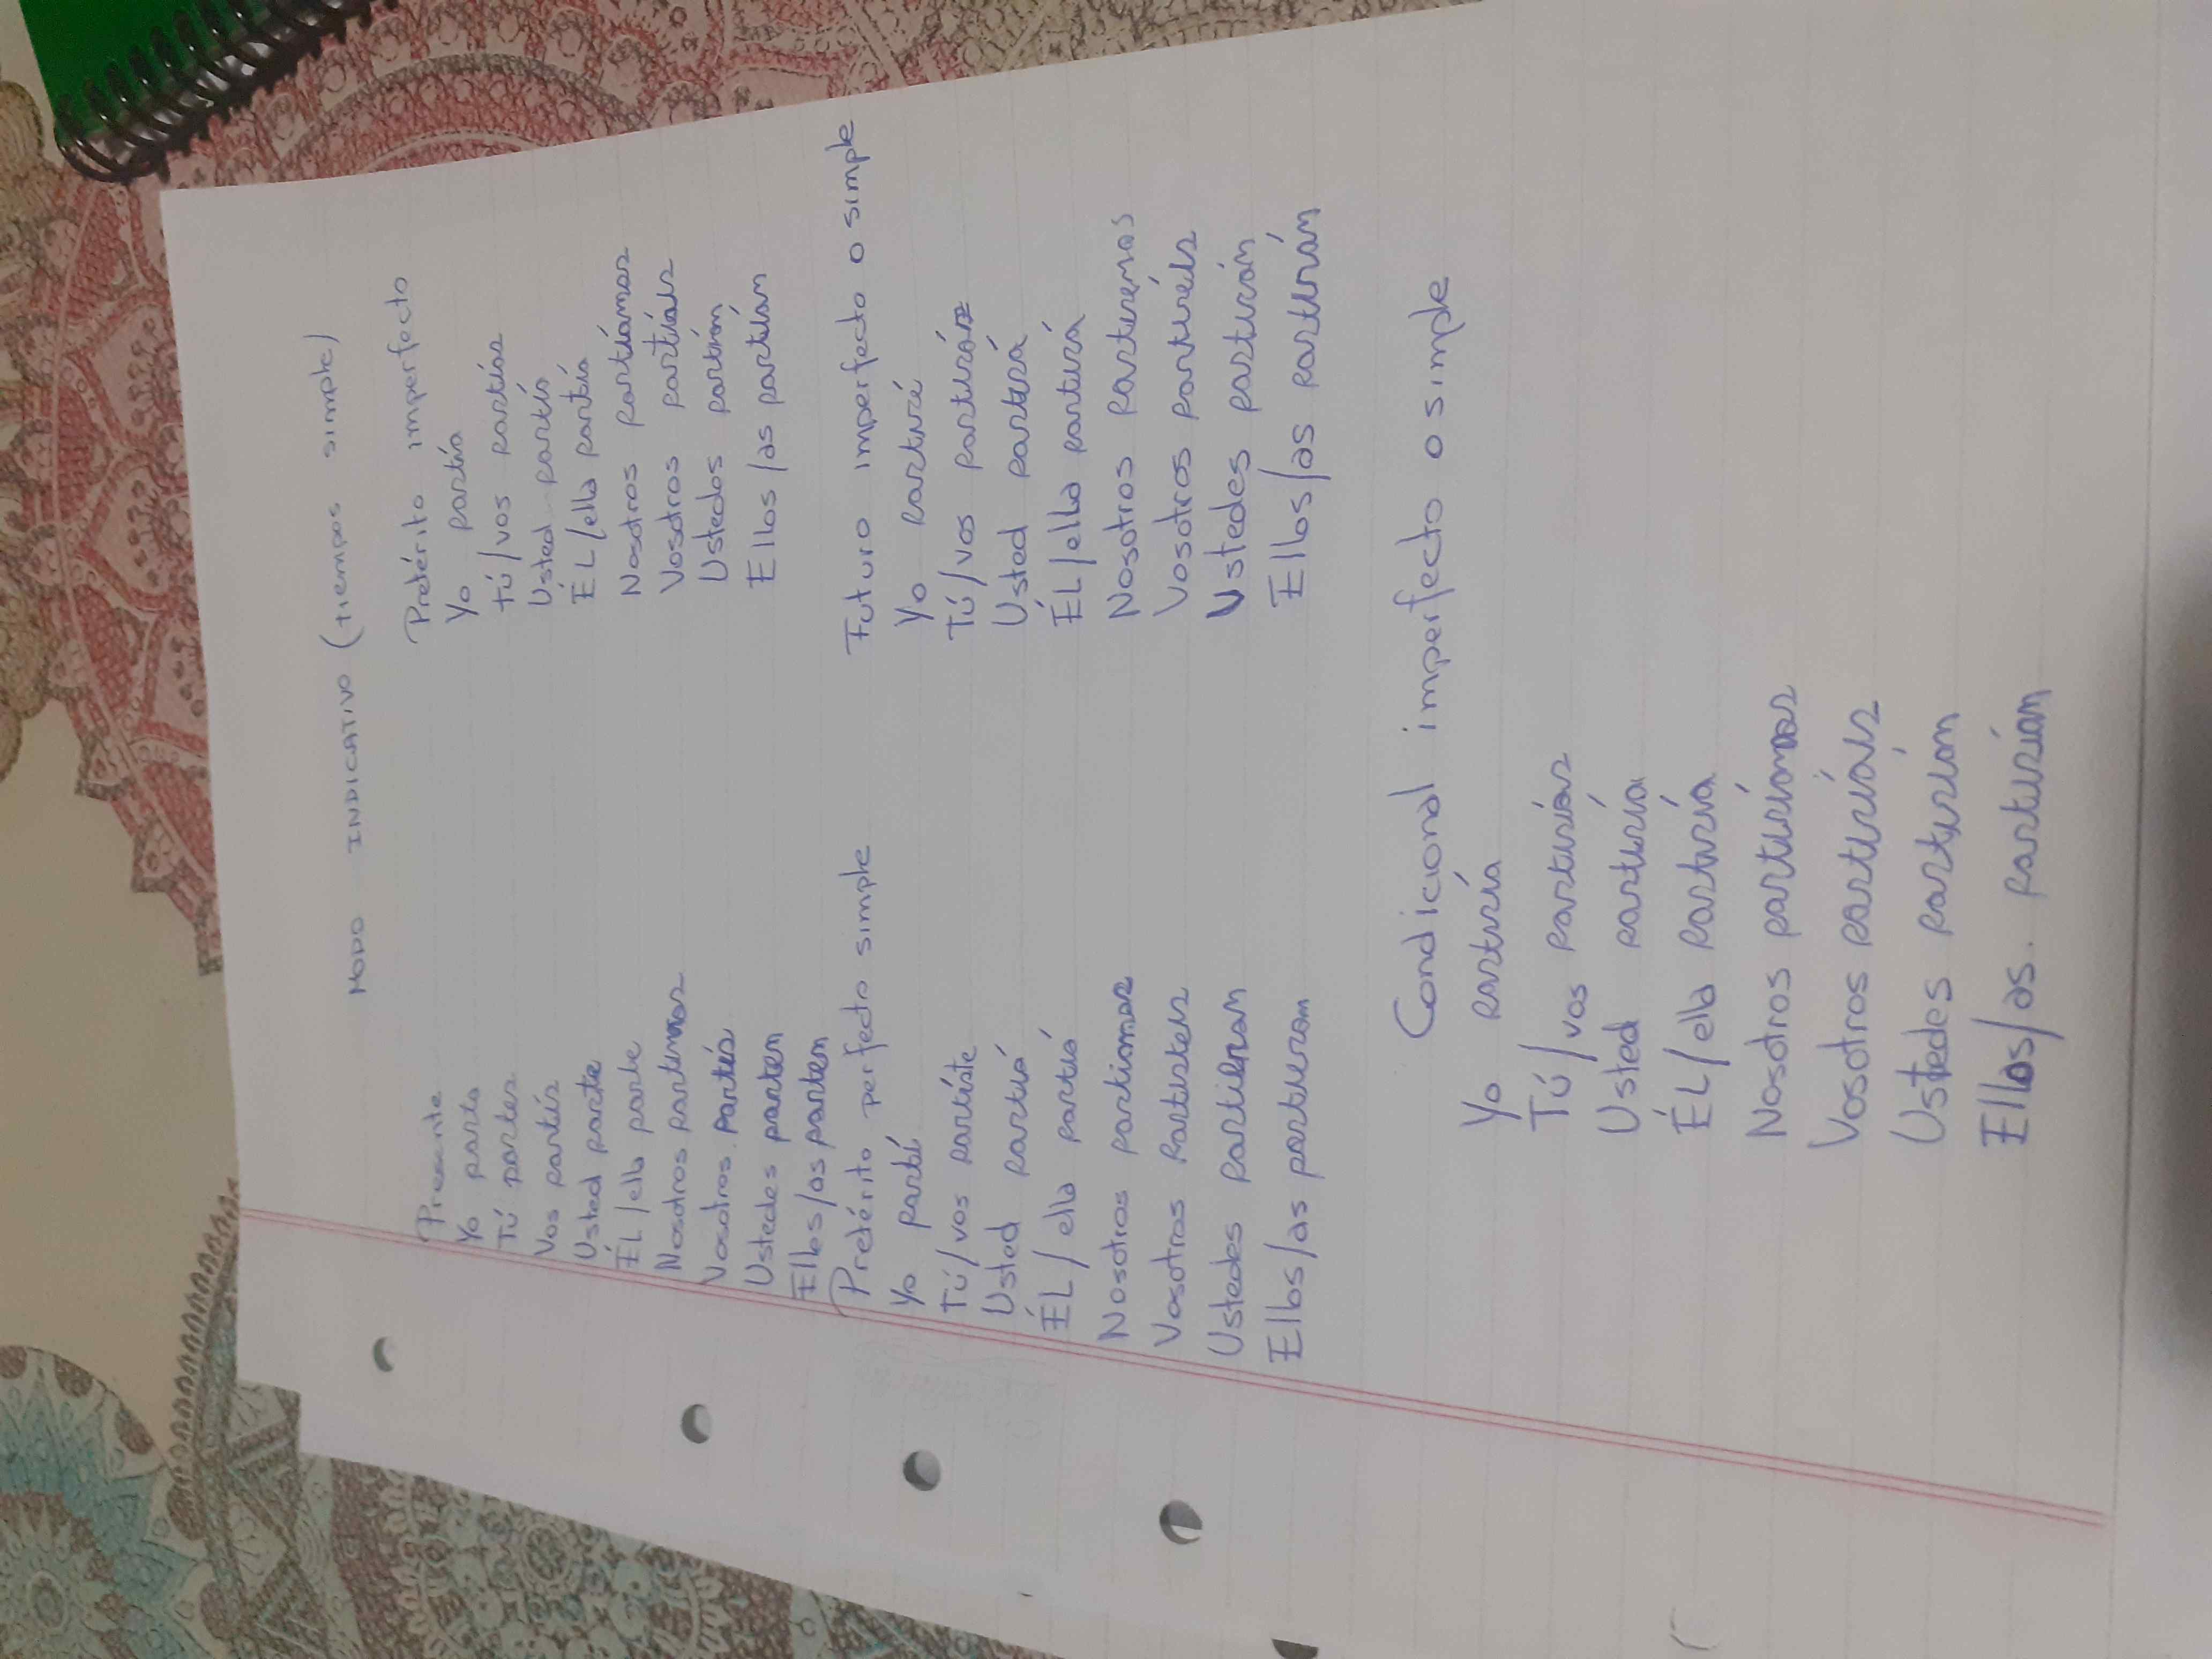 MODO INDICATIVO (tiempos simple)
Presente
Yo parto
Tú partes
Vos partís
Usted parte
Él/ella parte
Nosotros partimos
Vosotros partís
Ustedes parten
Ellos/as parten
Pretérito imperfecto
Yo partía
Tú/vos partías
Usted partía
Él/ella partía
Nosotros partíamos
Vosotros partíais
Ustedes partían
Ellos/as partían
Pretérito perfecto simple
Yo partí
Tú/vos partiste
Usted partió
Él/ella partió
Nosotros partimos
Vosotros partisteis
Ustedes partieron
Ellos/as partieron
Futuro imperfecto o simple
Yo partiré
Tú/vos partirás
Usted partirá
Él/ella partirá
Nosotros partiremos
Vosotros partiréis
Ustedes partirán
Ellos/as partirán
Condicional imperfecto o simple
Yo partiría
Tú/vos partirías
Usted partiría
Él/ella partiría
Nosotros partiríamos
Vosotros partiríais
Ustedes partirían
Ellos/as. partirían